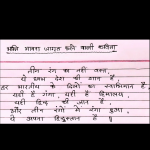 भक्ति भावना जागृत करने वाली कविता
तीन रंग का नही वस्त्र,
ये ध्वज देश की शान है,
हर भारतीय के दिलो का स्वाभिमान है,
यही है गंगा, यही है हिमालय,
यही हिन्द की जान है,
और तीन रंगो में रंगा हुआ,
ये अपना हिन्दुस्तान है ॥